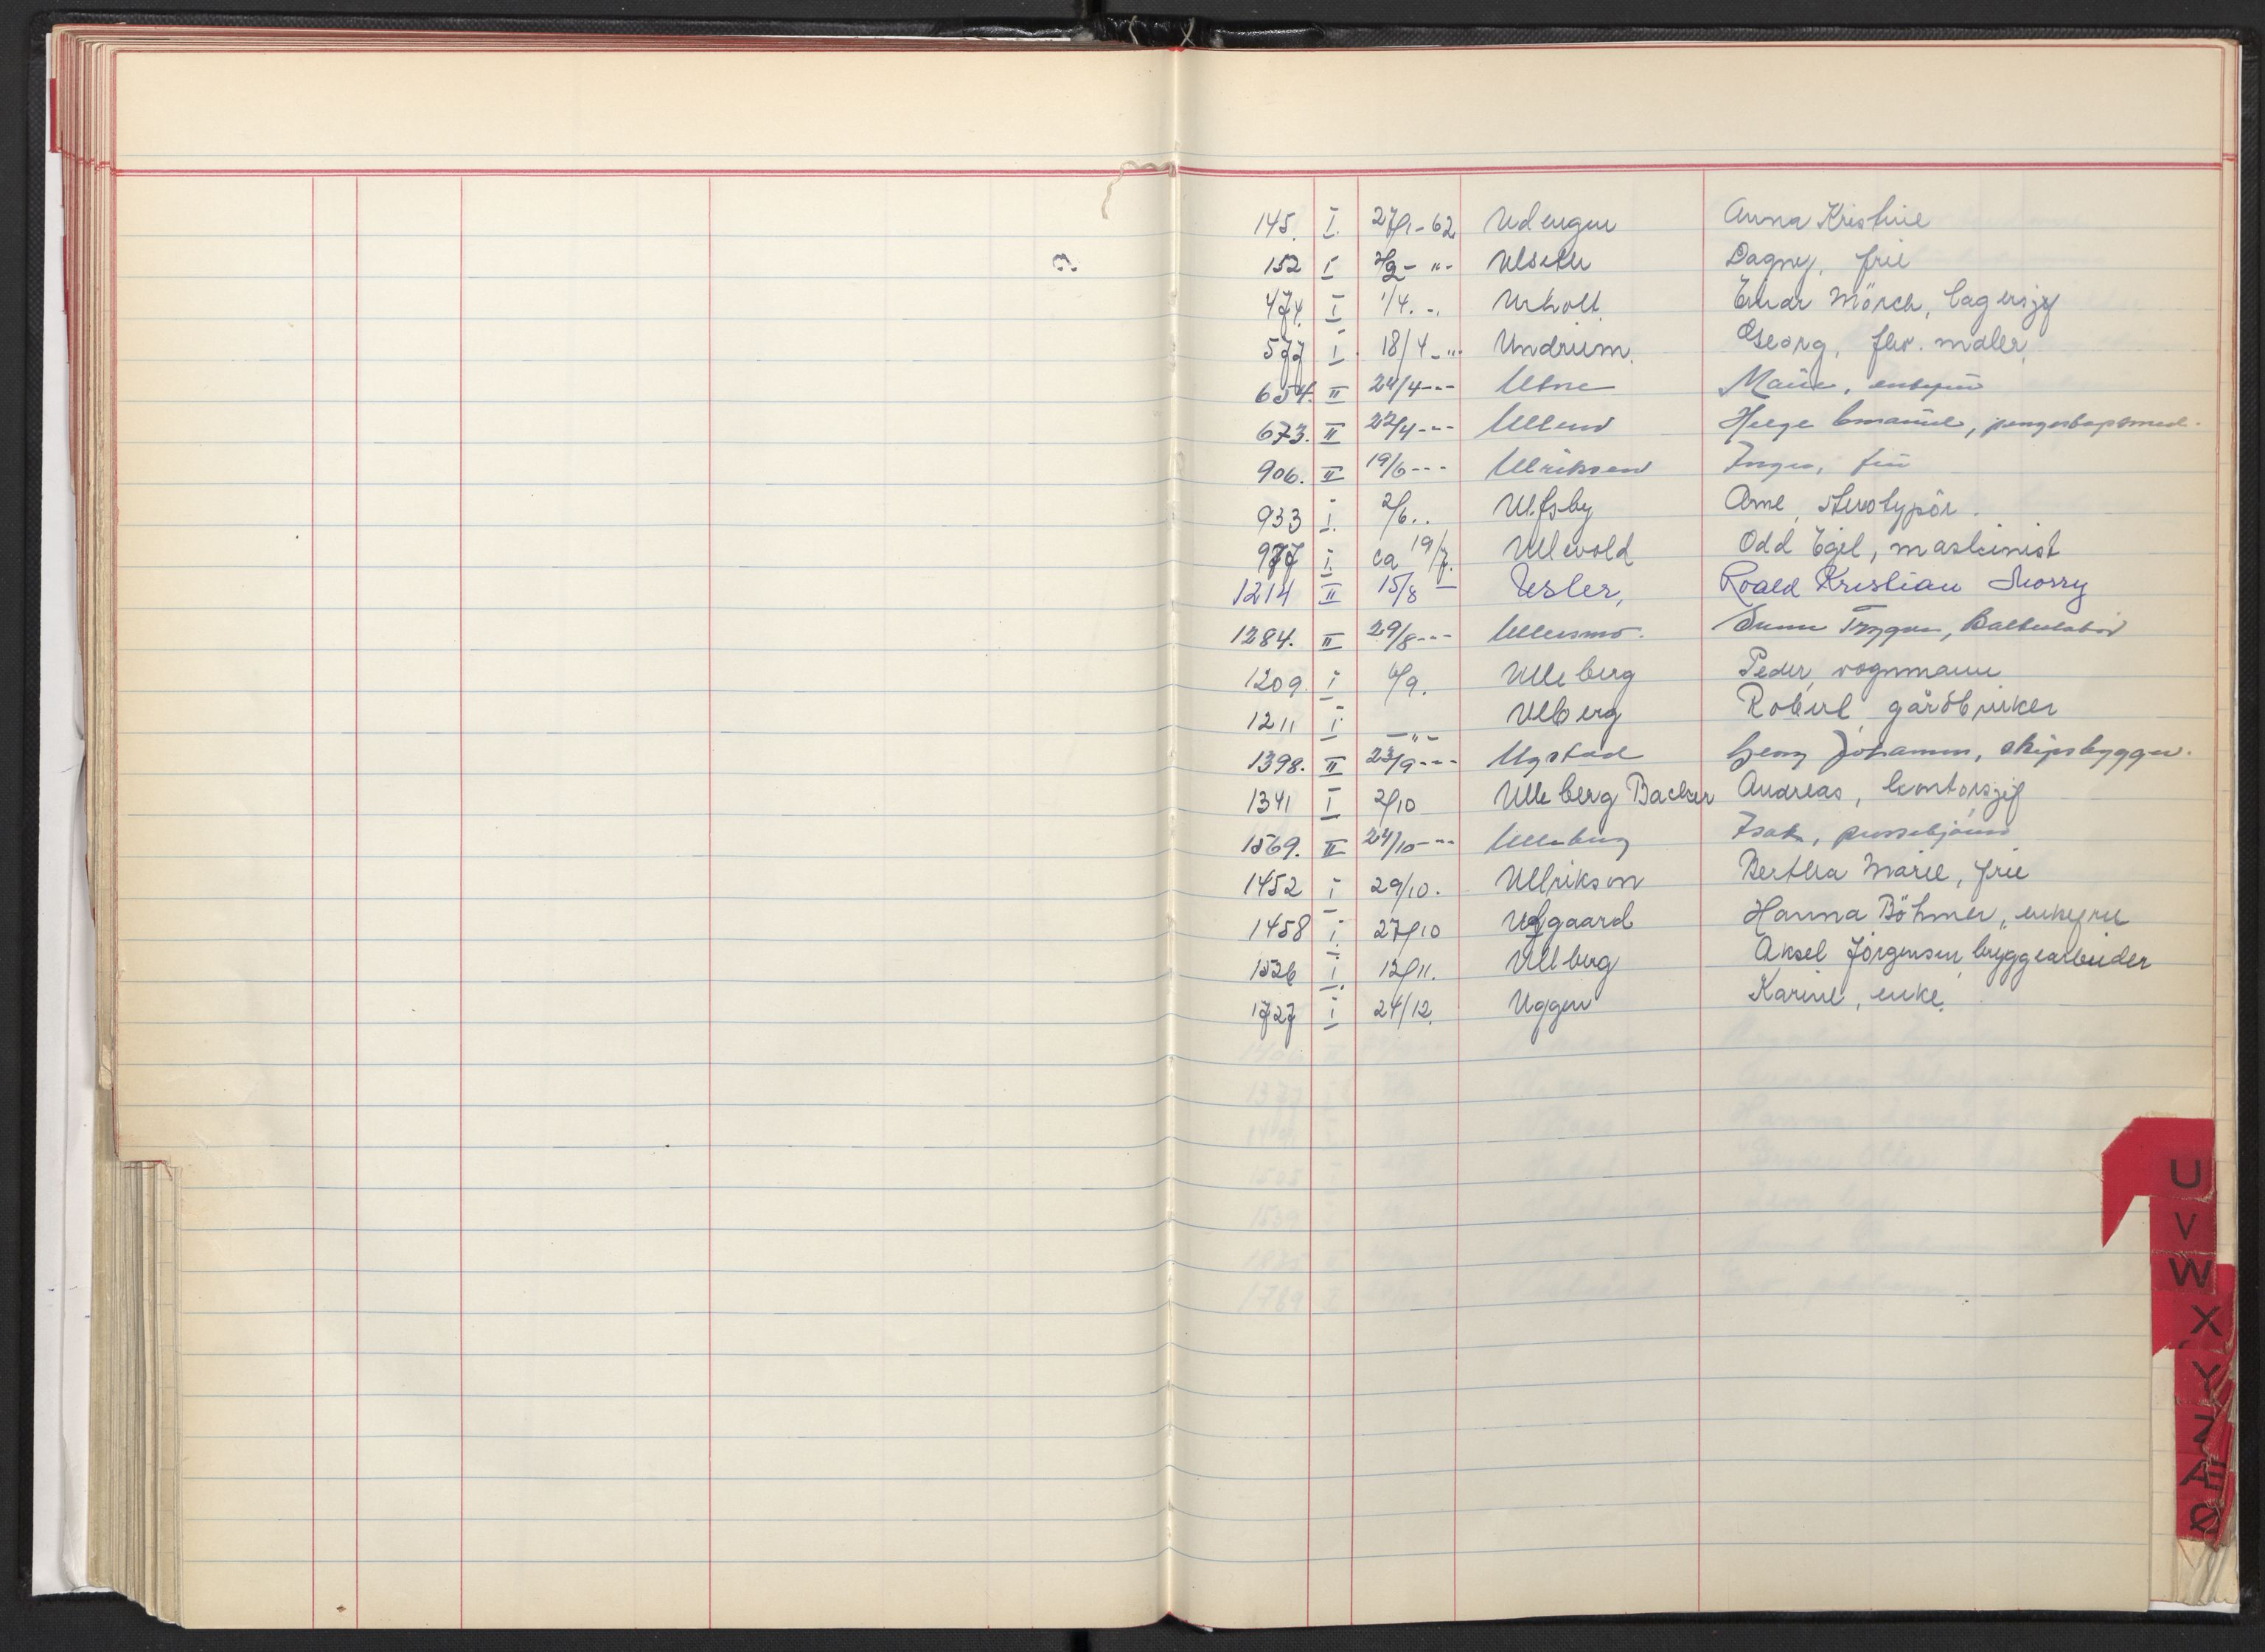 145. I. 27/1-62 Udengen Anna Kristine
152 I 2/2 - " - Ulseth Dagny, frue
474. I 1/4. -. Urholt. Einar Mörch, lagersjef
577 I 18/4 - " Undrum. Georg, fhv. maler
654. II 24/4 --- Utne Marie, enkefru
673. II 27/4 --- Helge Emanuel,
906. II 19/6 --- Ulriksen Inger, fru
933 I. 2/6.. Ulfsby Arne, sterotypör.
977 I. ca 19/7. Ullevold Odd Egil, maskinist
1214 II 15/8 - Usler, Roald Kristian
1284. II 29/8 --- Ullersmo. Trygve, kalkulatör
1209. I 6/9. Ulleberg Peder, vognmann
1211 I - " - Ulberg Robert, gårdbruker
1398. II 23/9 --- Ugstad Georg Johannes, skipsbygger.
1341 I 2/10 Ulleberg Backer Andreas, kontorsjef
1569. II 24/10 --- Ulleberg Isak,
1452 I 29/10. Ullrikson Bertha Marie, frue
1458 I. 27/10 Ufgaard Hanna Böhmer, enkefru
1526 I. 12/11. Ullberg Aksel Jörgensen, bryggearbeider
1727 I 24/12. Uggen Karine, enke.
U
V
W
X
Y
Z
Æ
Ø